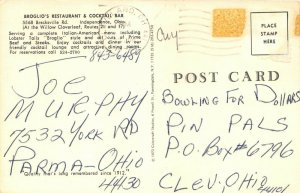 BROGLIO'S RESTAURANT & COCKTAIL BAR
5668 Brecksville Rd. Independence, Ohio
(At the Willow Cloverleaf, Routes 21 and 17)
Serving a complete Italian-American menu including
Lobster Tails "Broglio" style and all cuts of Prime
Beef and Steaks. Enjoy cocktails and dinner in our
friendly cocktail lounge and attractive dining rooms.
For reservations call 524-2700
843-6481
PLACE
STAMP
HERE
POST CARD
JOE
MURPHY
7532 YORK RD
PARMA-OHIO
44130
remembered since 1912."
BOWLING FOR DOLLARS
PIN PALS
P.O. BOX# 6796
CLEV. OHIO
44101